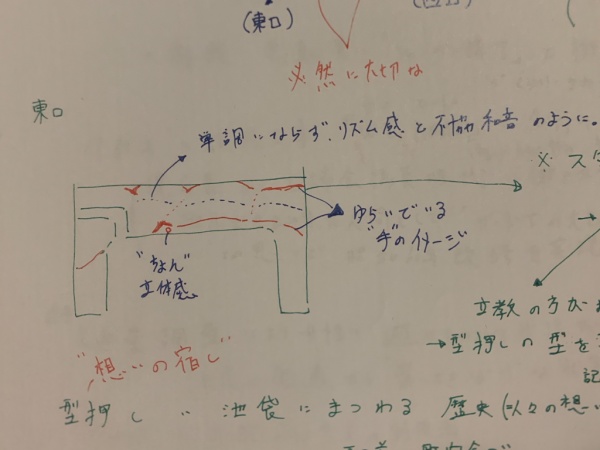 (東口)
必然に大切な
東口
単調にならず、リズム感と不協和音のように。
※ス
ゆらいでいる
"手"のイメージ
"ちょん"
立体感
立教の方が
→型押しの型を
"想いの宿し"
型押し 池袋にまつわる 歴史(=人々の想い